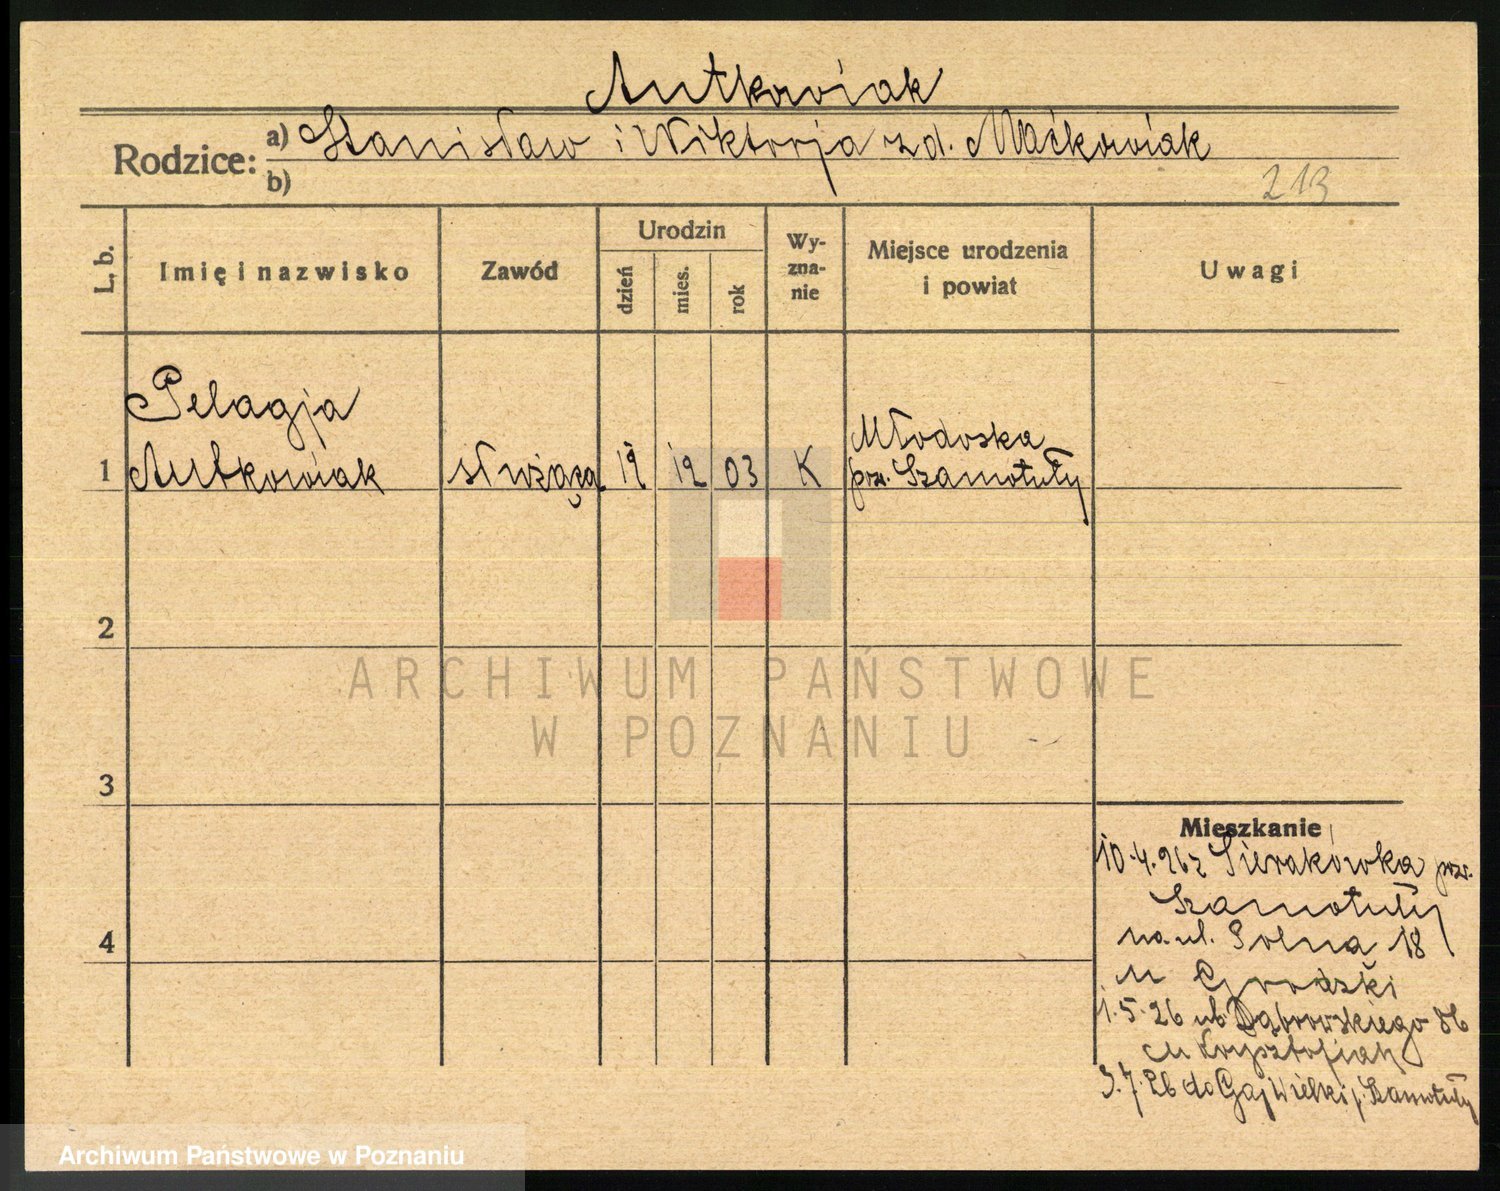 Antkowiak
Rodzice: a) Stanisław i Wiktorja z d. Maćkowiak
b)
213
L. b.
Imię i nazwisko
Zawód
Urodzin
dzień
mies.
rok
Wy-
zna-
nie
Miejsce urodzenia
i powiat
Uwagi
Pelagja
1 Antkowiak służąca 12 03 K
Młodoska
pow. Szamotuły
2
3
4
ARCHIWUM PAŃSTWOWE
W POZNANIU
Mieszkanie
10.4.26 z Sierakówka pow.
Szamotuły
na ul. Polna 18
u Grodzki
1.5.26 ul. Dąbrowskiego
u Krysztofiak
3.7.26 do Gaj Wielki p. Szamotuły
Archiwum Państwowe w Poznaniu